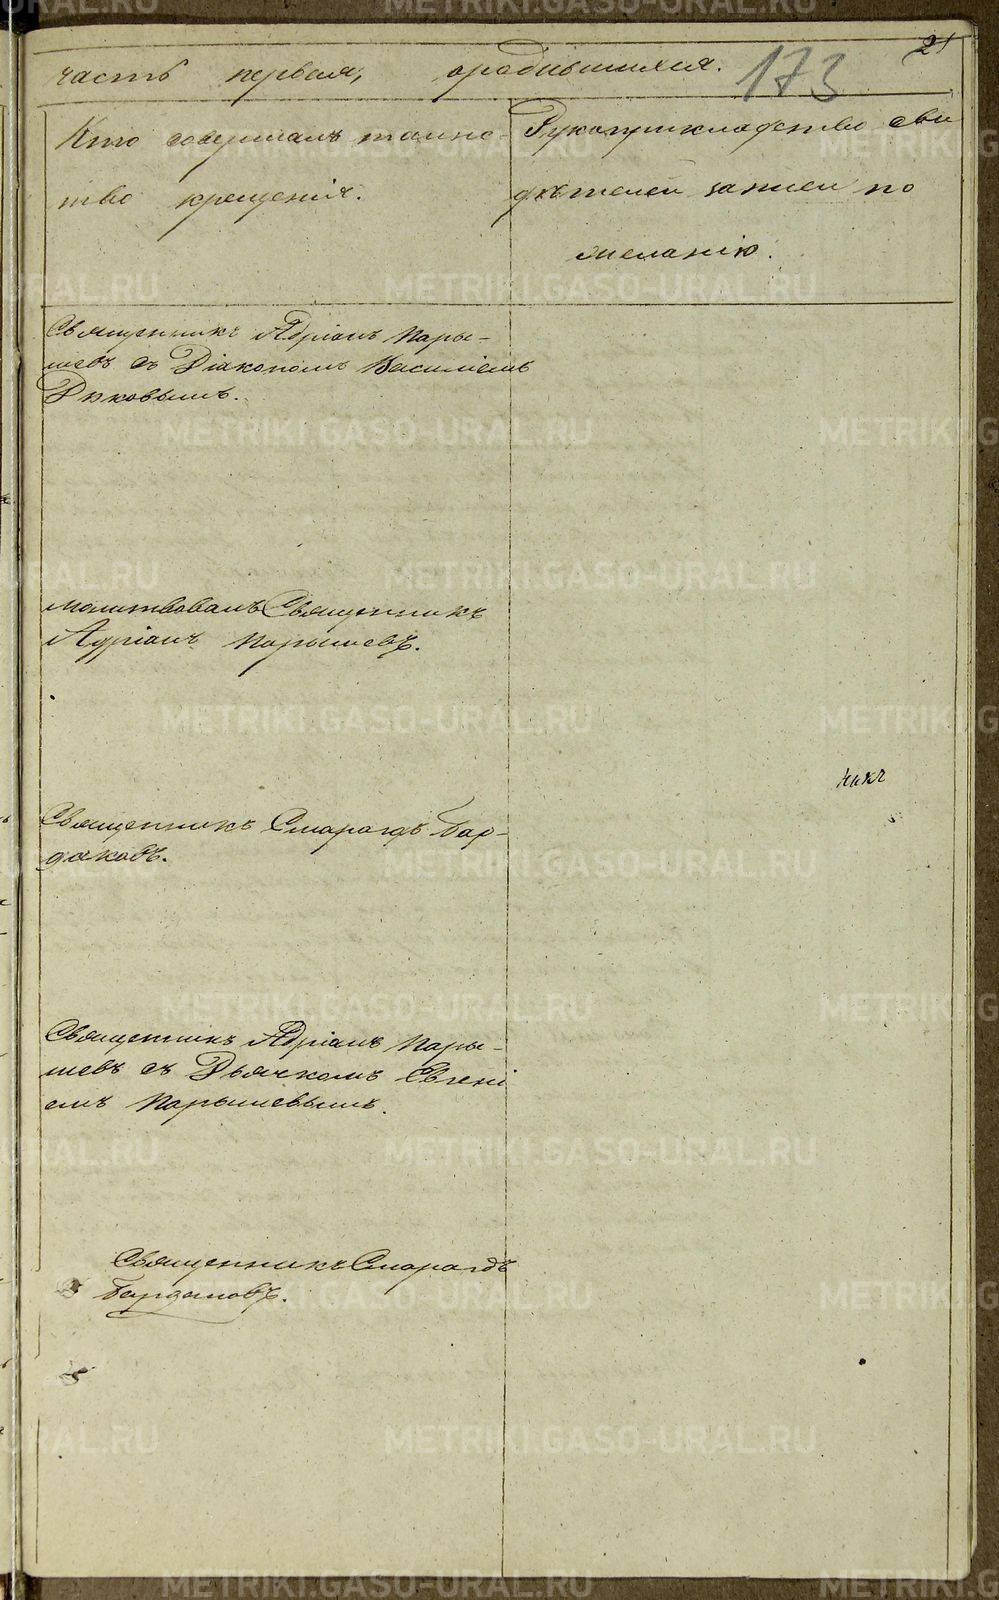 21
часть первая, о родившихся. 173
Кто совершалъ таинс-
тво крещенія.
Рукоприкладство сви
дѣтелей записи по
желанію.
Священникъ Адріанъ Пары-
шевъ съ Діакономъ Василіемъ
Дьковымъ.
Молитвовалъ Священникъ
Адріанъ Парышевъ.
Священникъ Смарагдъ Бар-
даковъ.
Священникъ Адріанъ Пары-
шевъ съ Дьячкомъ Евгені
емъ Парышевымъ.
Священникъ Смарагдъ
Бардаковъ.
METRIKI.GASO-URAL.RU